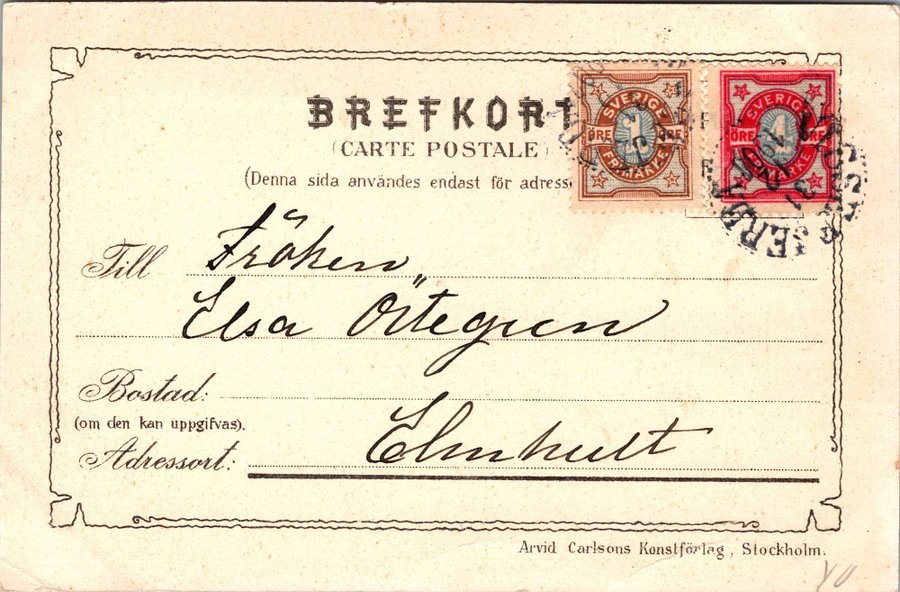 BREFKORT
(CARTE POSTALE)
(Denna sida användes endast för adress
SVERIGE
ÖRE 1 ÖRE
FRIMÄRKE
SVERIGE
ÖRE 4
FRIMÄRKE
31
Till Fröken
Elsa Örtegren
Bostad:
(om den kan uppgifvas).
Adressort: Elmhult
Arvid Carlsons Konstförlag, Stockholm.